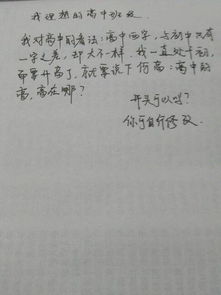 我理想的高中班级
我对高中的看法：高中两字，与初中只有
一字之差，却大不一样。我一直处于初，
而要升高了，就要说下何高：高中的
高，高在哪？
开头可以吗？
你可自行修改